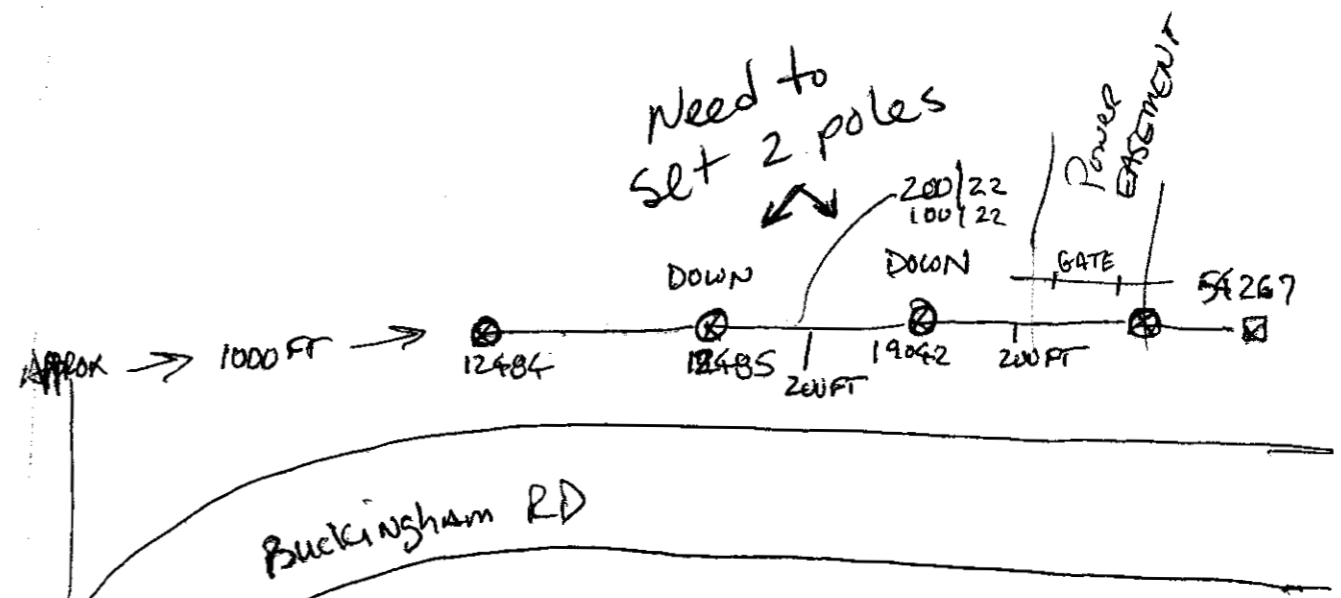 Need to
set 2 poles
POWER
EASEMENT
200/22
100/22
DOWN
DOWN
GATE
54267
APPROX → 1000 FT →
12484
12485
200FT
19042
200FT
Buckingham RD